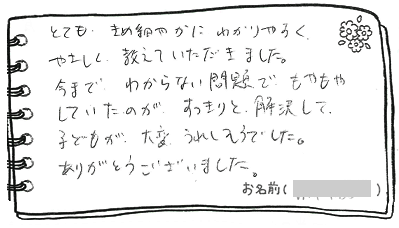 とても きめ細やかに わかりやすく
やさしく 教えていただきました。
今まで わからない問題で もやもや
していたのが すっきりと 解決して
子どもが 大変 うれしそうでした。
ありがとうございました。
お名前( )